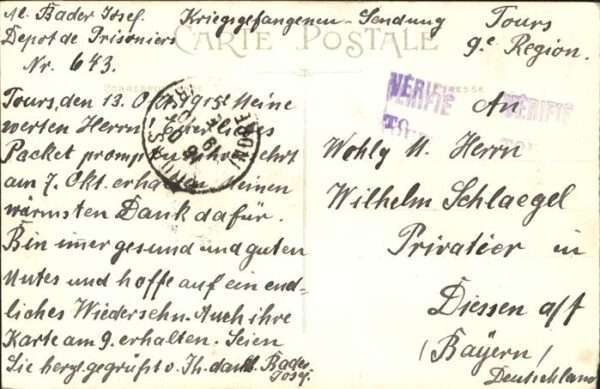 M. Bader Josef.
Depot de Prisoniers
Nr. 643.
Kriegsgefangenen-Sendung
Tours
9.e Region.
CARTE POSTALE
CORRESPONDANCE
ADRESSE
VÉRIFIÉ
VÉRIFIÉ
Tours, den 13. Okt. 1915! Meine
werten Herrn! Ihr liebes
Packet prompt u. unversehrt
am 7. Okt. erhalten. Meinen
wärmsten Dank dafür.
Bin immer gesund und guten
Mutes und hoffe auf ein end-
liches Wiedersehn. Auch ihre
Karte am 9. erhalten. Seien
Sie herzl. gegrüßt v. Ih. dankb. Bader
Josef.
An
Wohlg. H. Herrn
Wilhelm Schlaegel
Privatier in
Diessen a/A
(Bayern)
Deutschland